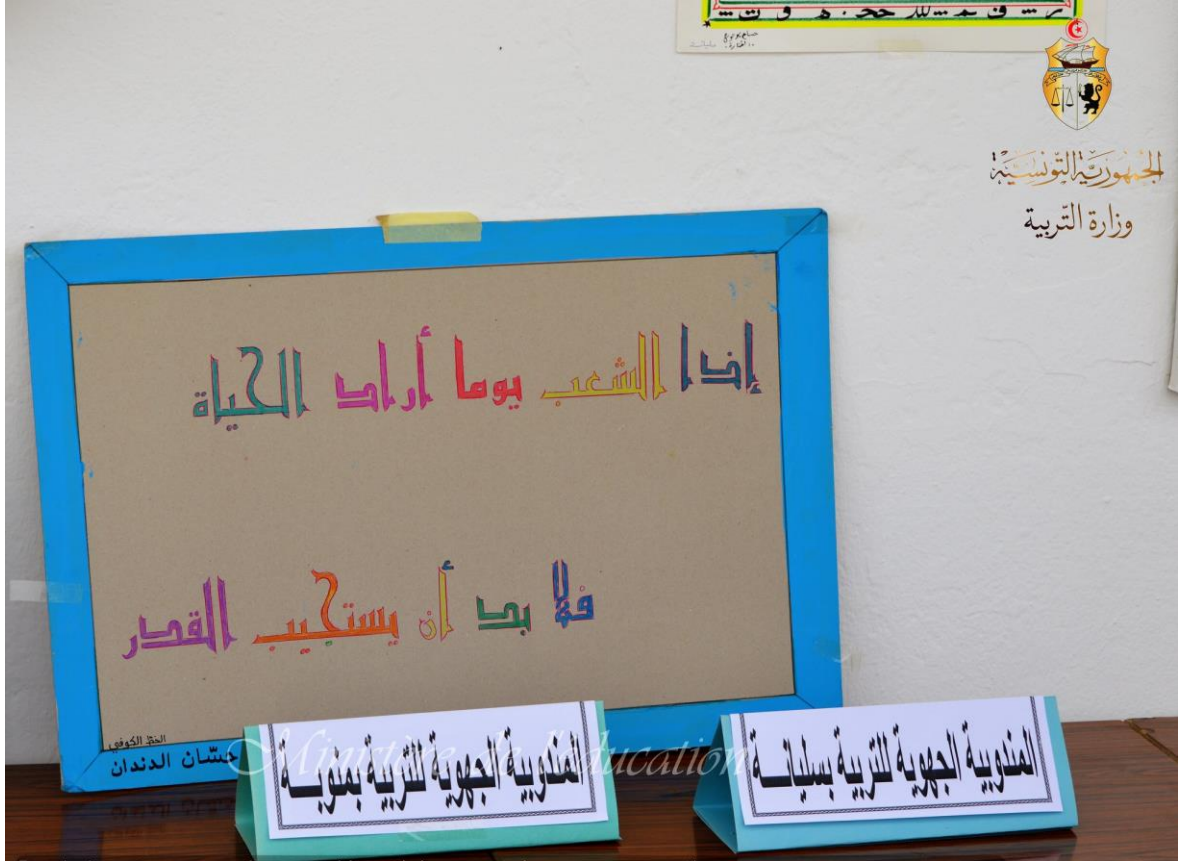 الجمهورية التونسية
وزارة التّربية
إذا الشعب يوما أراد الحياة
فلا بد أن يستجيب القدر
الخط الكوفي
حسّان الدندان
Ministère de l'éducation
المندوبية الجهوية للتربية بمنوبـــة
المندوبية الجهوية للتربية بسليانـــة